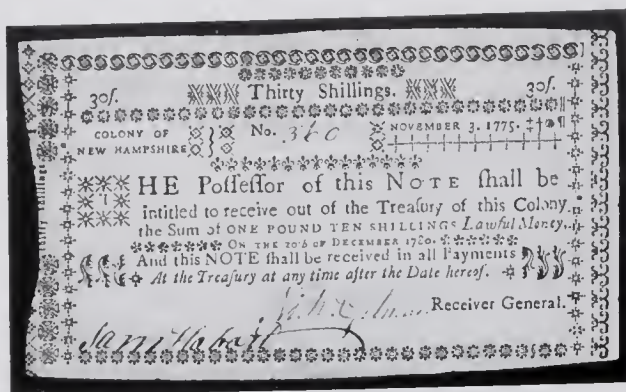 30ſ. Thirty Shillings. 30ſ.
COLONY OF NEW HAMPSHIRE No. 360 NOVEMBER 3. 1775. ‡†☙¶
THE Poſſeſſor of this NOTE ſhall be
intitled to receive out of the Treaſury of this Colony
the Sum of ONE POUND TEN SHILLINGS Lawful Money,
ON THE 20th OF DECEMBER 1780.
And this NOTE ſhall be received in all Payments
At the Treaſury at any time after the Date hereof.
Receiver General.